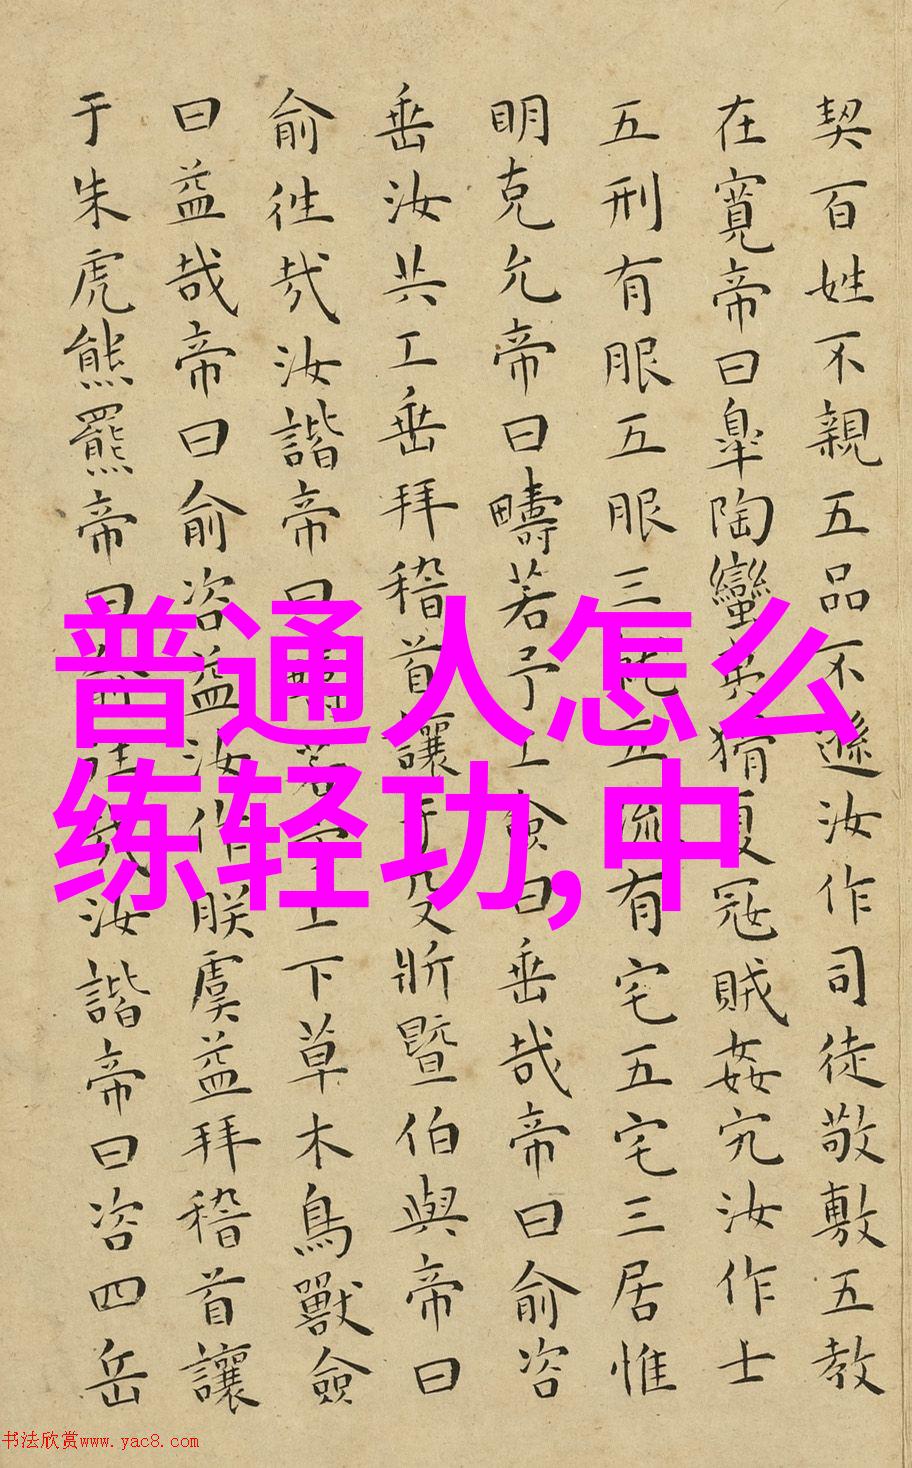 契百姓不親五品不遜汝作司徒敬敷五教
在寬帝曰皋陶蠻夷猾夏冦賊姦宄汝作士
五刑有服五服三就五流有宅五宅三居惟
明克允帝曰疇若予工僉曰垂哉帝曰俞咨
垂汝共工垂拜稽首讓于殳斨暨伯與帝曰
俞往哉汝諧帝曰疇若予上下草木鳥獸僉
曰益哉帝曰俞咨益汝作朕虞益拜稽首讓
于朱虎熊羆帝曰俞往哉汝諧帝曰咨四岳
普通人怎么
练轻功,中
书法欣赏www.yac8.com